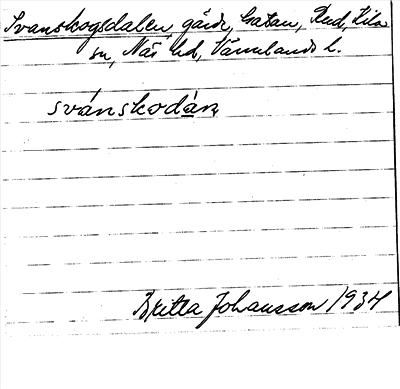 Svanskogsdalen, gård, Gatan, Rud, Kila
sn, Näs hd, Värmlands l.
svánskodàn
Britta Johansson 1934